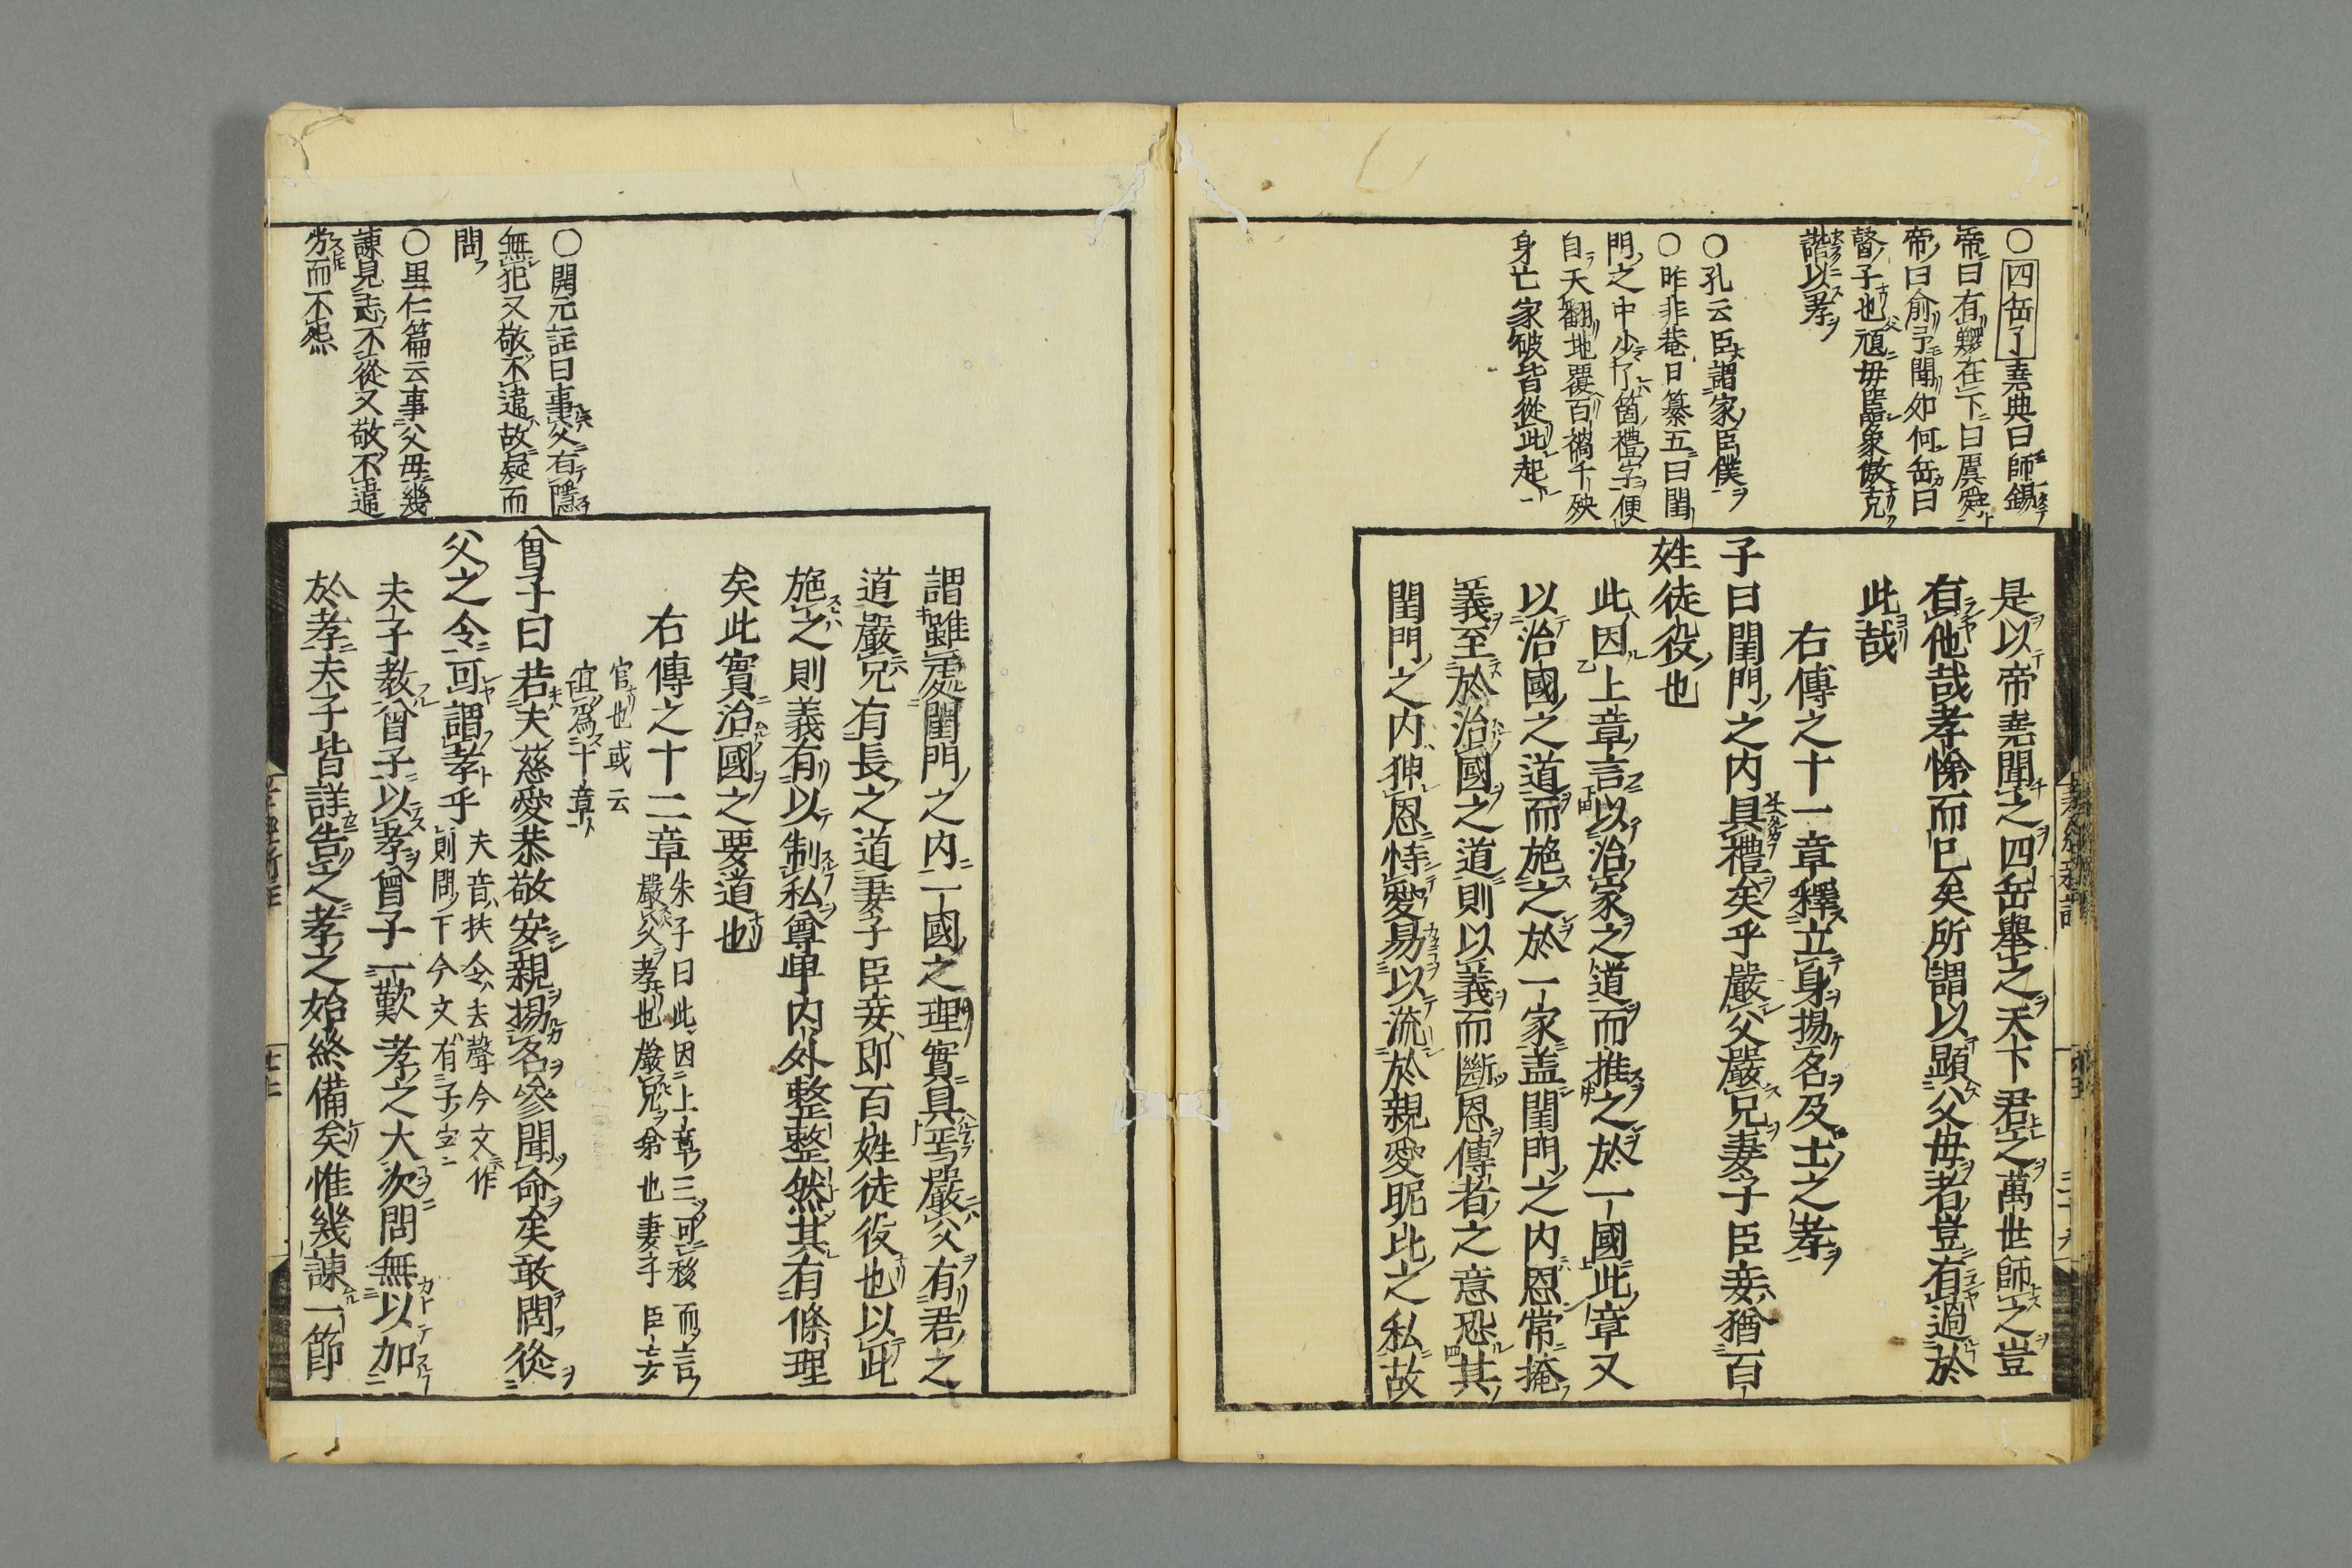 〇四岳了堯典曰師錫
帝曰有鰥在下曰虞舜
帝曰俞予聞如何岳曰
瞽子也頑母嚚象傲克
諧以孝
〇孔云臣謂家臣僕
〇昨非菴日纂五曰閨
門之中少了箇禮字便
自天翻地覆百禍千殃
身亡家破皆從此起
是以帝堯聞之四岳舉之天下君之萬世師之豈
有他哉孝悌而已矣所謂以顯父母者豈有過於
此哉
右傳之十一章釋立身揚名及士之孝
子曰閨門之内具禮矣乎嚴父嚴兄妻子臣妾猶百
姓徒役也
此因上章言以治家之道而推之於一國此章又
以治國之道而施之於一家盖閨門之内恩常掩
義至於治國之道則以義而斷恩傳者之意恐其
閨門之内狎恩恃愛易以流於親愛昵比之私故
〇開元註曰事父有隱
無犯又敬不違故疑而
問
〇里仁篇云事父母幾
諫見志不從又敬不違
労而不怨
謂雖處閨門之内一國之理實具焉嚴父有君之
道嚴兄有長之道妻子臣妾即百姓徒役也以此
施之則義有以制私尊卑内外整整然其有條理
矣此實治國之要道也
右傳之十二章
朱子曰此因上章三可移而言
嚴父孝也嚴兄弟也妻子臣妾
官也或云
宜爲十章
曾子曰若夫慈愛恭敬安親揚名參聞命矣敢問從
父之令可謂孝乎
夫音扶令去聲今文作
則問下今文有子字
夫子教曾子以孝曾子一歎孝之大次問無以加
於孝夫子皆詳告之孝之始終備矣惟幾諫一節